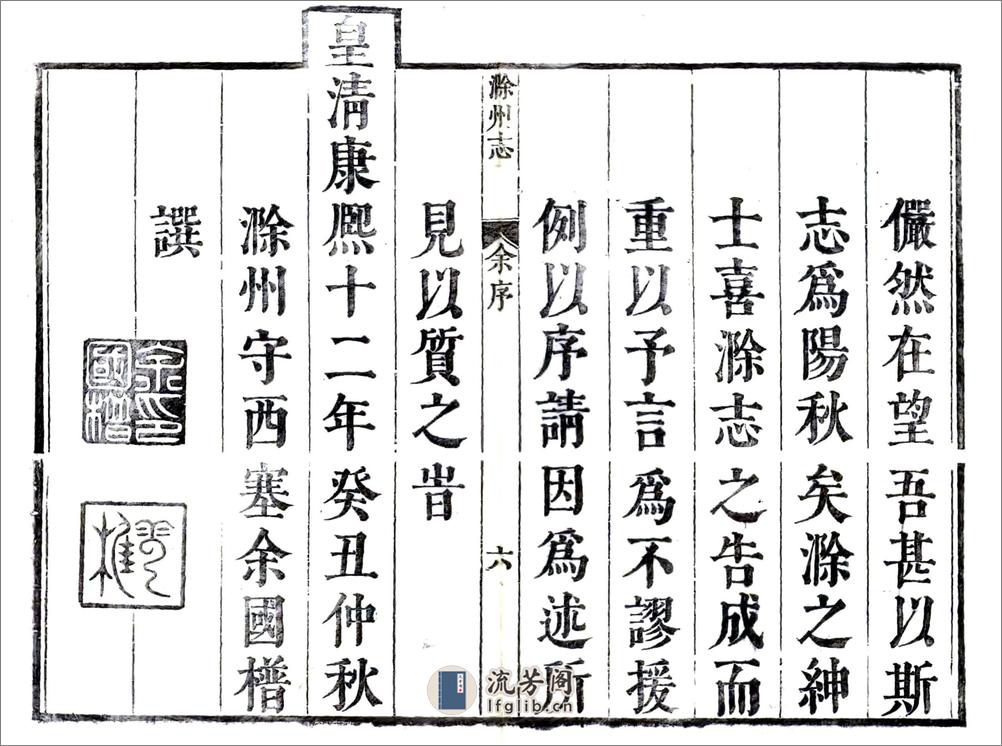 儼然在望吾甚以斯
志爲陽秋矣滁之紳
士喜滁志之告成而
重以予言爲不謬援
例以序請因爲述所
滁州志
余序
六
見以質之旹
皇清康熈十二年癸丑仲秋
滁州守西塞余國㯭
譔
余印國㯭
流芳阁
lfglib.cn